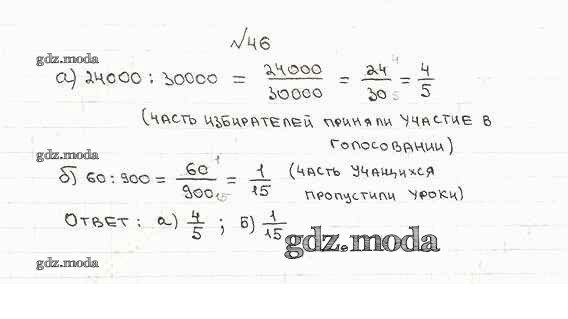 №46
gdz.moda
а) 24000 : 30000 = 24000/30000 = 24⁴/30₅ = 4/5
(часть избирателей приняли участие в
голосовании)
gdz.moda
б) 60 : 900 = 60¹/900₁₅ = 1/15 (часть учащихся
пропустили уроки)
Ответ: а) 4/5 ; б) 1/15
gdz.moda
gdz.moda